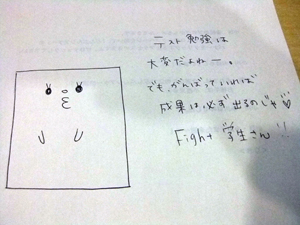 テスト勉強は
大変だよねー。
でも、がんばっていれば
成果は必ず出るのじゃ♡
Fight 学生さん!!